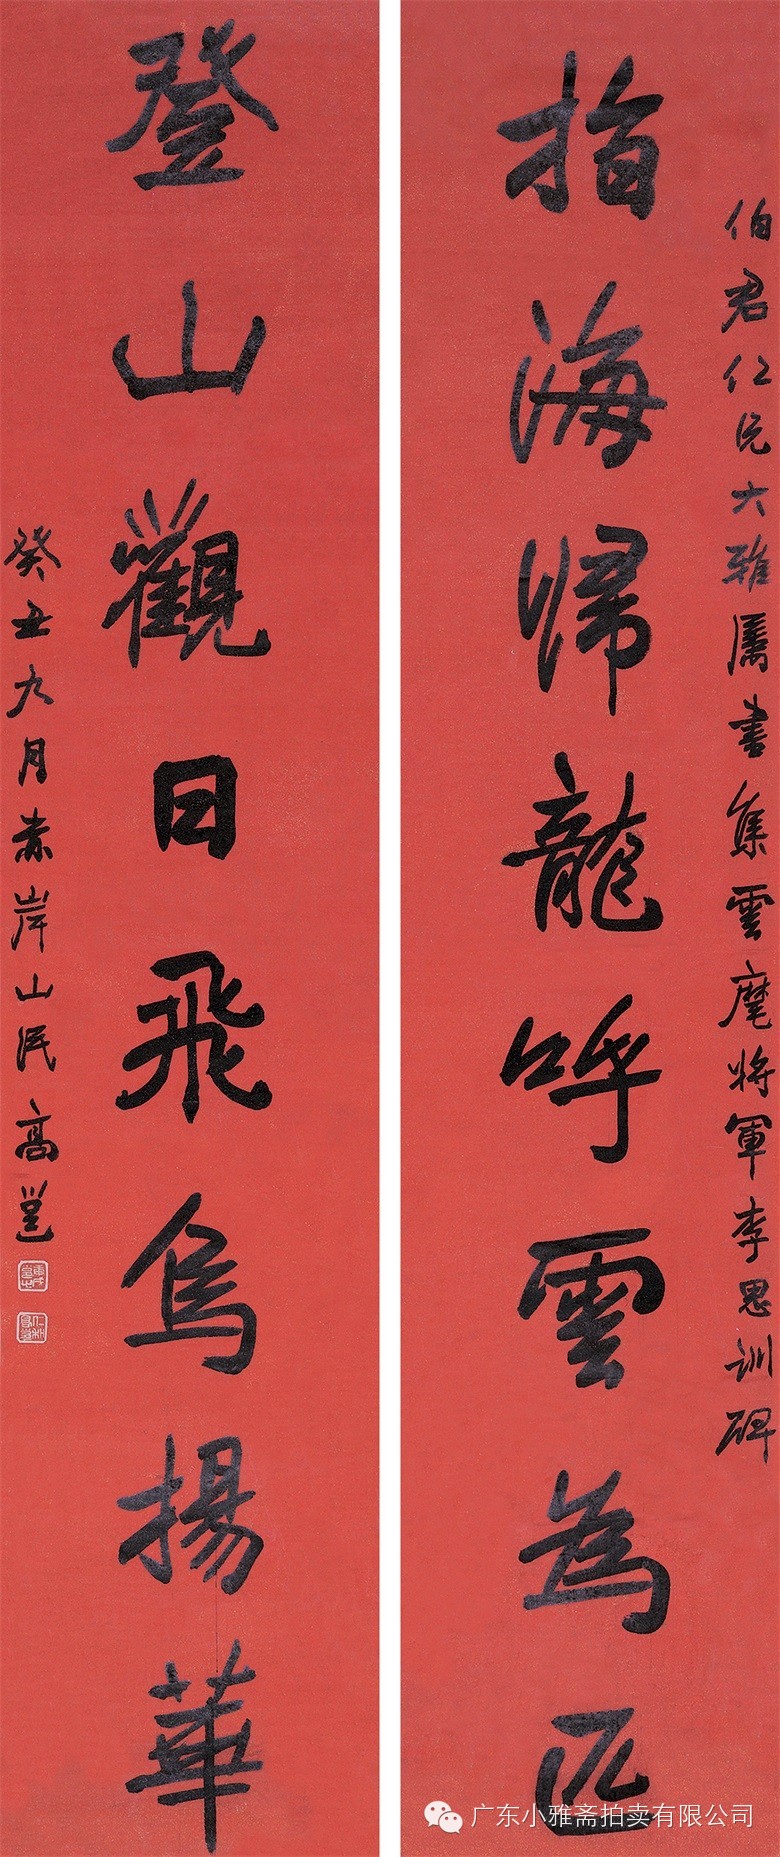 伯君仁兄大雅属書集雲麾將軍李思訓碑
指海歸龍呼雲為匹
登山觀日飛烏揚華
癸丑九月赤岸山民高邕
广东小雅斋拍卖有限公司